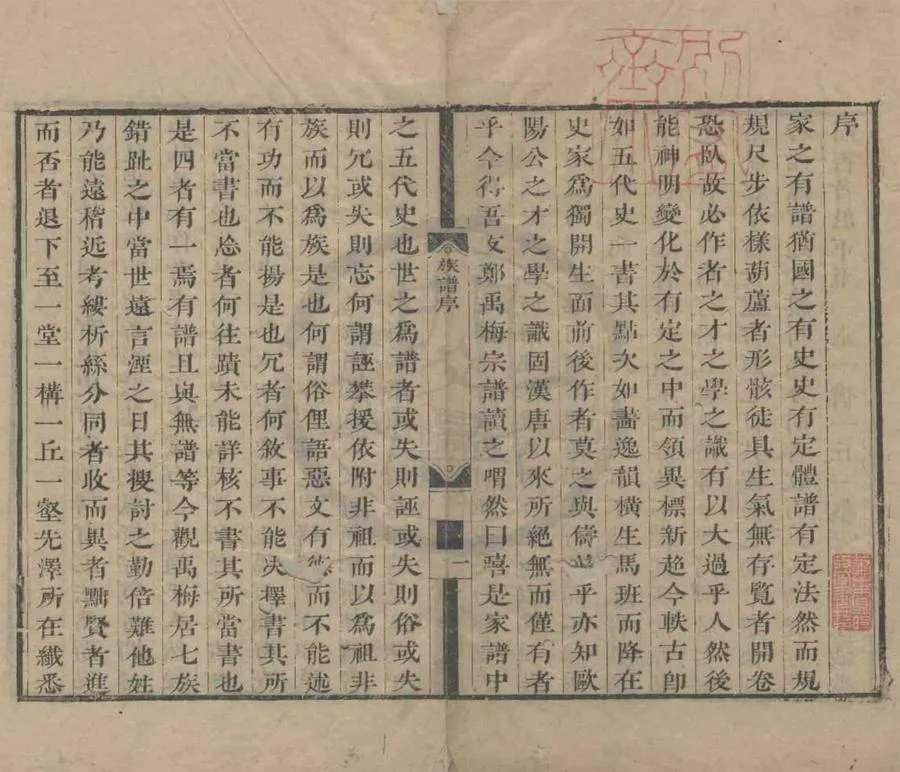 序
家之有譜猶國之有史史有定體譜有定法然而規
規尺步依樣葫蘆者形骸徒具生氣無存覽者開卷
恐臥故必作者之才之學之識有以大過乎人然後
能神明變化於有定之中而領異標新超今軼古卽
如五代史一書其點次如畵逸韻橫生馬班而降在
史家爲獨開生面前後作者莫之與儔乎亦知歐
陽公之才之學之識固漢唐以來所絕無而僅有者
乎今得吾友鄭禹梅宗譜讀之喟然曰嘻是家譜中
族譜序
一
之五代史也世之爲譜者或失則誣或失則俗或失
則冗或失則忘何謂誣攀援依附非祖而以爲祖非
族而以爲族是也何謂俗俚語惡文有德而不能述
有功而不能揚是也冗者何敘事不能决擇書其所
不當書也忘者何往蹟未能詳核不書其所當書也
是四者有一焉有譜且與無譜等今觀禹梅居七族
錯趾之中當世遠言湮之日其搜討之勤倍難他姓
乃能遠稽近考縷析絲分同者收而異者黜賢者進
而否者退下至一堂一構一丘一壑先澤所在纖悉